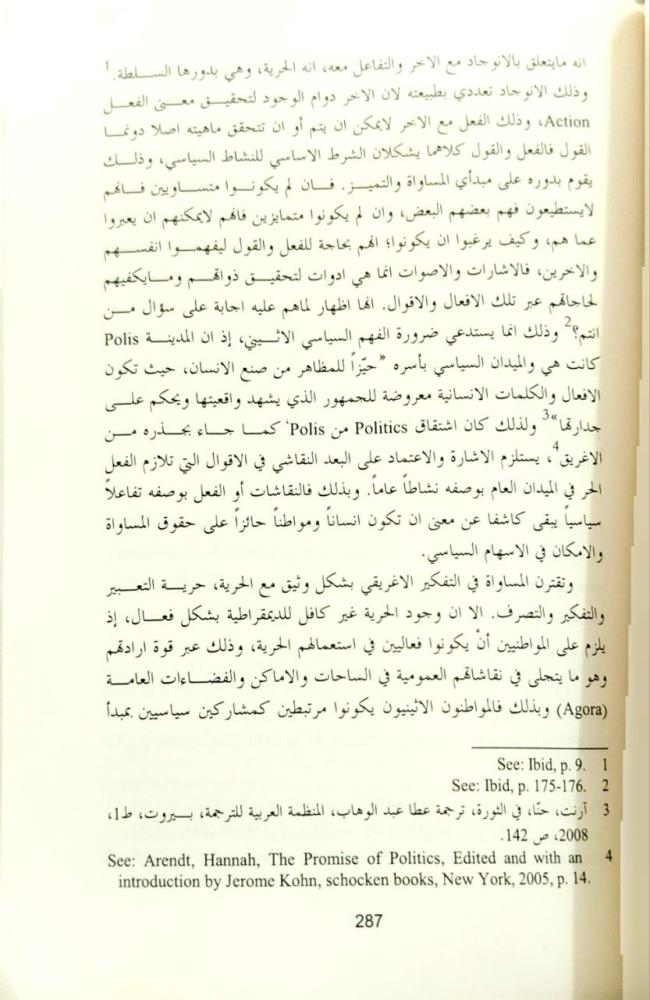 انه مايتعلق بالانوجاد مع الاخر والتفاعل معه، انه الحرية، وهي بدورها السـلطة.1
وذلك الانوجاد تعددي بطبيعته لان الاخر دوام الوجود لتحقيـق معـنى الفعـل
Action، وذلك الفعل مع الاخر لايمكن ان يتم أو ان تتحقق ماهيته اصلا دونمـا
القول فالفعل والقول كلاهما يشكلان الشرط الاساسي للنشاط السياسي، وذلـك
يقوم بدوره على مبدأي المساواة والتميـز. فـان لم يكونـوا متسـاويين فـانهم
لايستطيعون فهم بعضهم البعض، وان لم يكونوا متمايزين فانهم لايمكنهم ان يعبروا
عما هم، وكيف يرغبوا ان يكونوا؛ انهم بحاجة للفعل والقول ليفهمـوا انفسـهم
والاخرين، فالاشارات والاصوات انما هي ادوات لتحقيـق ذواتهـم ومـايكفيهم
لحاجاتهم عبر تلك الافعال والاقوال. انها اظهار لماهم عليه اجابة على سؤال مـن
انتم؟2 وذلك انما يستدعي ضرورة الفهم السياسي الاثـيني، إذ ان المدينـة Polis
كانت هي والميدان السياسي بأسره «حيّزاً للمظاهر من صنع الانسان، حيث تكون
الافعال والكلمات الانسانية معروضة للجمهور الذي يشهد واقعيتها ويحكم علـى
جدارتها»3 ولذلك كان اشتقاق Politics من Polis، كمـا جـاء بجـذره مـن
الاغريق4، يستلزم الاشارة والاعتماد على البعد النقاشي في الاقوال التي تلازم الفعل
الحر في الميدان العام بوصفه نشاطاً عاماً. وبذلك فالنقاشات أو الفعل بوصفه تفاعلاً
سياسياً يبقى كاشفا عن معنى ان تكون انساناً ومواطناً حائزاً على حقوق المساواة
والامكان في الاسهام السياسي.
وتقترن المساواة في التفكير الاغريقي بشكل وثيق مع الحرية، حريـة التعـبير
والتفكير والتصرف. الا ان وجود الحرية غير كافل للديمقراطية بشكل فعـال، إذ
يلزم على المواطنيين أنْ يكونوا فعاليين في استعمالهم الحرية، وذلك عبر قوة ارادتهم
وهو ما يتجلى في نقاشاتهم العمومية في الساحات والاماكن والفضـاءات العامـة
(Agora) وبذلك فالمواطنون الاثينيون يكونوا مرتبطين كمشاركين سياسيين بمبدأ
1 See: Ibid, p. 9.
2 See: Ibid, p. 175-176.
3 آرنت، حنّا، في الثورة، ترجمة عطا عبد الوهاب، المنظمة العربية للترجمة، بـيروت، ط1،
2008، ص 142.
4 See: Arendt, Hannah, The Promise of Politics, Edited and with an
introduction by Jerome Kohn, schocken books, New York, 2005, p. 14.
287